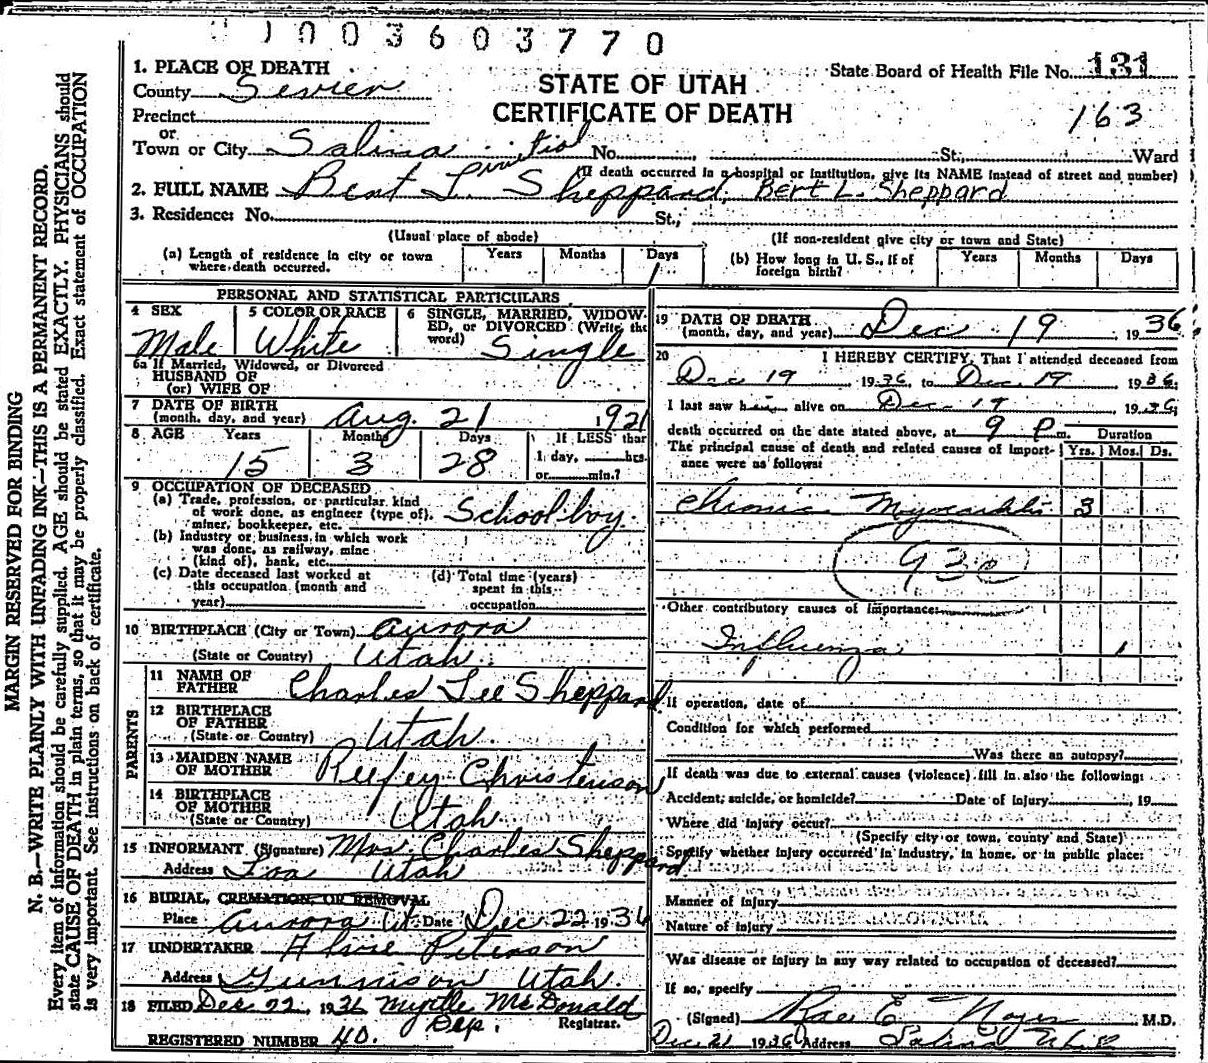 1003603770
1. PLACE OF DEATH
County Sevier
STATE OF UTAH
CERTIFICATE OF DEATH
State Board of Health File No. 131
163
Precinct
or
Town or City Salina No. St., Ward
initial
(If death occurred in a hospital or institution, give its NAME instead of street and number)
2. FULL NAME Bert L. Sheppard, Bert L. Sheppard
3. Residence: No. St.,
(Usual place of abode) (If non-resident give city or town and State)
(a) Length of residence in city or town where death occurred. Years Months Days 1
(b) How long in U. S., if of foreign birth? Years Months Days
PERSONAL AND STATISTICAL PARTICULARS
4 SEX Male
5 COLOR OR RACE White
6 SINGLE, MARRIED, WIDOWED, or DIVORCED (Write the word) Single
6a If Married, Widowed, or Divorced
HUSBAND OF
(or) WIFE OF
7 DATE OF BIRTH
(month, day, and year) Aug. 21 1921
8 AGE Years Months Days If LESS than
15 3 28 1 day, hrs.
or min.?
9 OCCUPATION OF DECEASED
(a) Trade, profession, or particular kind
of work done, as engineer (type of),
miner, bookkeeper, etc. School boy
(b) Industry or business in which work
was done, as railway, mine
(kind of), bank, etc.
(c) Date deceased last worked at
this occupation (month and
year)
(d) Total time (years)
spent in this
occupation
10 BIRTHPLACE (City or Town) Aurora
(State or Country) Utah
PARENTS
11 NAME OF
FATHER Charles Lee Sheppard
12 BIRTHPLACE
OF FATHER
(State or Country) Utah
13 MAIDEN NAME
OF MOTHER Christenson
14 BIRTHPLACE
OF MOTHER
(State or Country) Utah
15 INFORMANT (Signature) Mrs. Charles Sheppard
Address Loa Utah
16 BURIAL, CREMATION, OR REMOVAL
Place Aurora Ut. Date Dec 22 1936
17 UNDERTAKER Peterson
Address Gunnison Utah.
18 FILED Dec 22, 1936 Myrtle McDonald
Dep. Registrar.
REGISTERED NUMBER 40.
19 DATE OF DEATH
(month, day, and year) Dec 19, 1936
20 I HEREBY CERTIFY, That I attended deceased from
Dec 19 1936, to Dec. 19 1936;
I last saw him alive on Dec 19 1936;
death occurred on the date stated above, at 9 P m. Duration
The principal cause of death and related causes of importance were as follows: Yrs. Mos. Ds.
Chronic Myocarditis 3
93c
Other contributory causes of importance:
Influenza 1
If operation, date of
Condition for which performed
Was there an autopsy?
If death was due to external causes (violence) fill in also the following:
Accident, suicide, or homicide? Date of injury , 19
Where did injury occur?
(Specify city or town, county and State)
Specify whether injury occurred in industry, in home, or in public place:
Manner of injury
Nature of injury
Was disease or injury in any way related to occupation of deceased?
If so, specify
(Signed) Rae E. Noyes M.D.
Dec 21 1936 Address Salina Utah
MARGIN RESERVED FOR BINDING
N. B.—WRITE PLAINLY WITH UNFADING INK—THIS IS A PERMANENT RECORD.
Every item of information should be carefully supplied. AGE should be stated EXACTLY. PHYSICIANS should
state CAUSE OF DEATH in plain terms, so that it may be properly classified. Exact statement of OCCUPATION
is very important. See instructions on back of certificate.